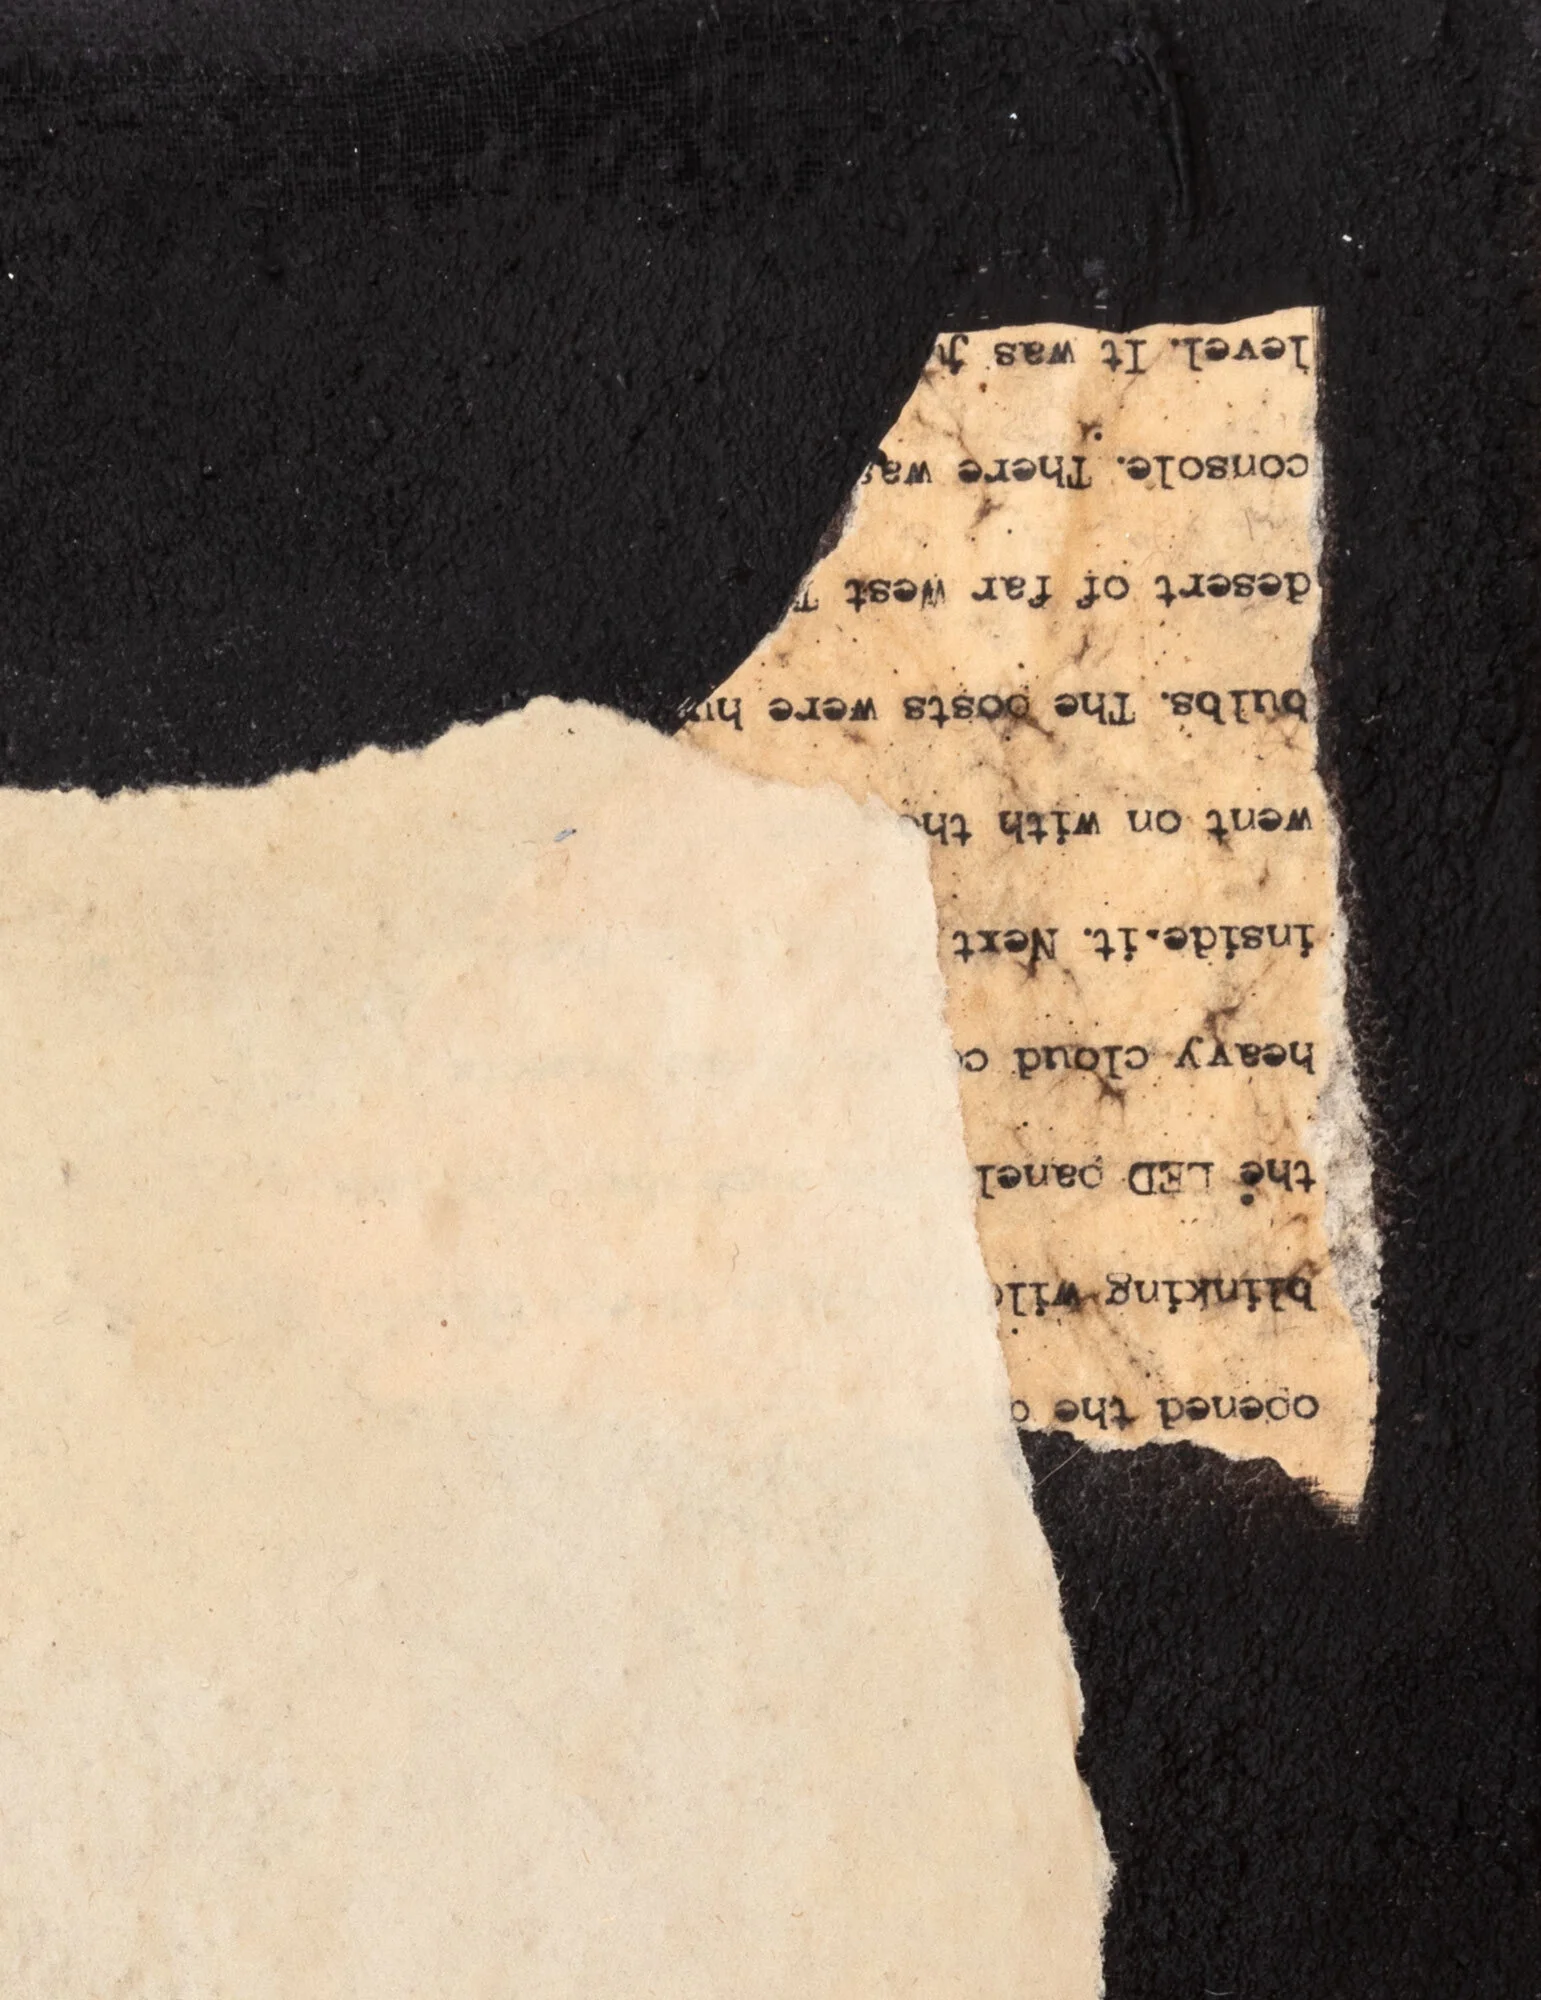 opened the
blinking
the LED panel
heavy cloud
inside.it. Next
went on with the
bulbs. The posts were
desert of far West T
console. There was
level. It was